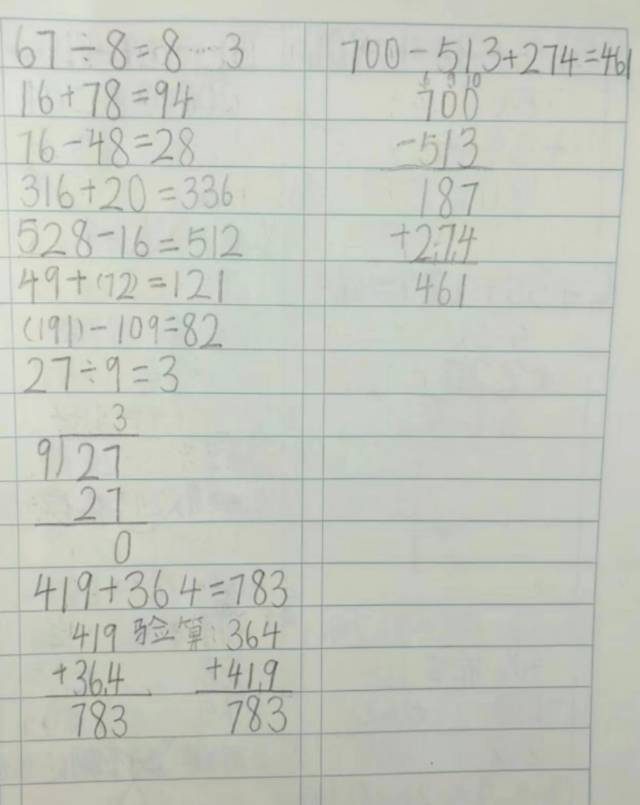 67÷8=8…3
16+78=94
76-48=28
316+20=336
528-16=512
49+(72)=121
(191)-109=82
27÷9=3
3
9)27
27
0
419+364=783
419 验算:364
+364 +419
783 783
700-513+274=461
6 9 10
700
-513
187
+274
461